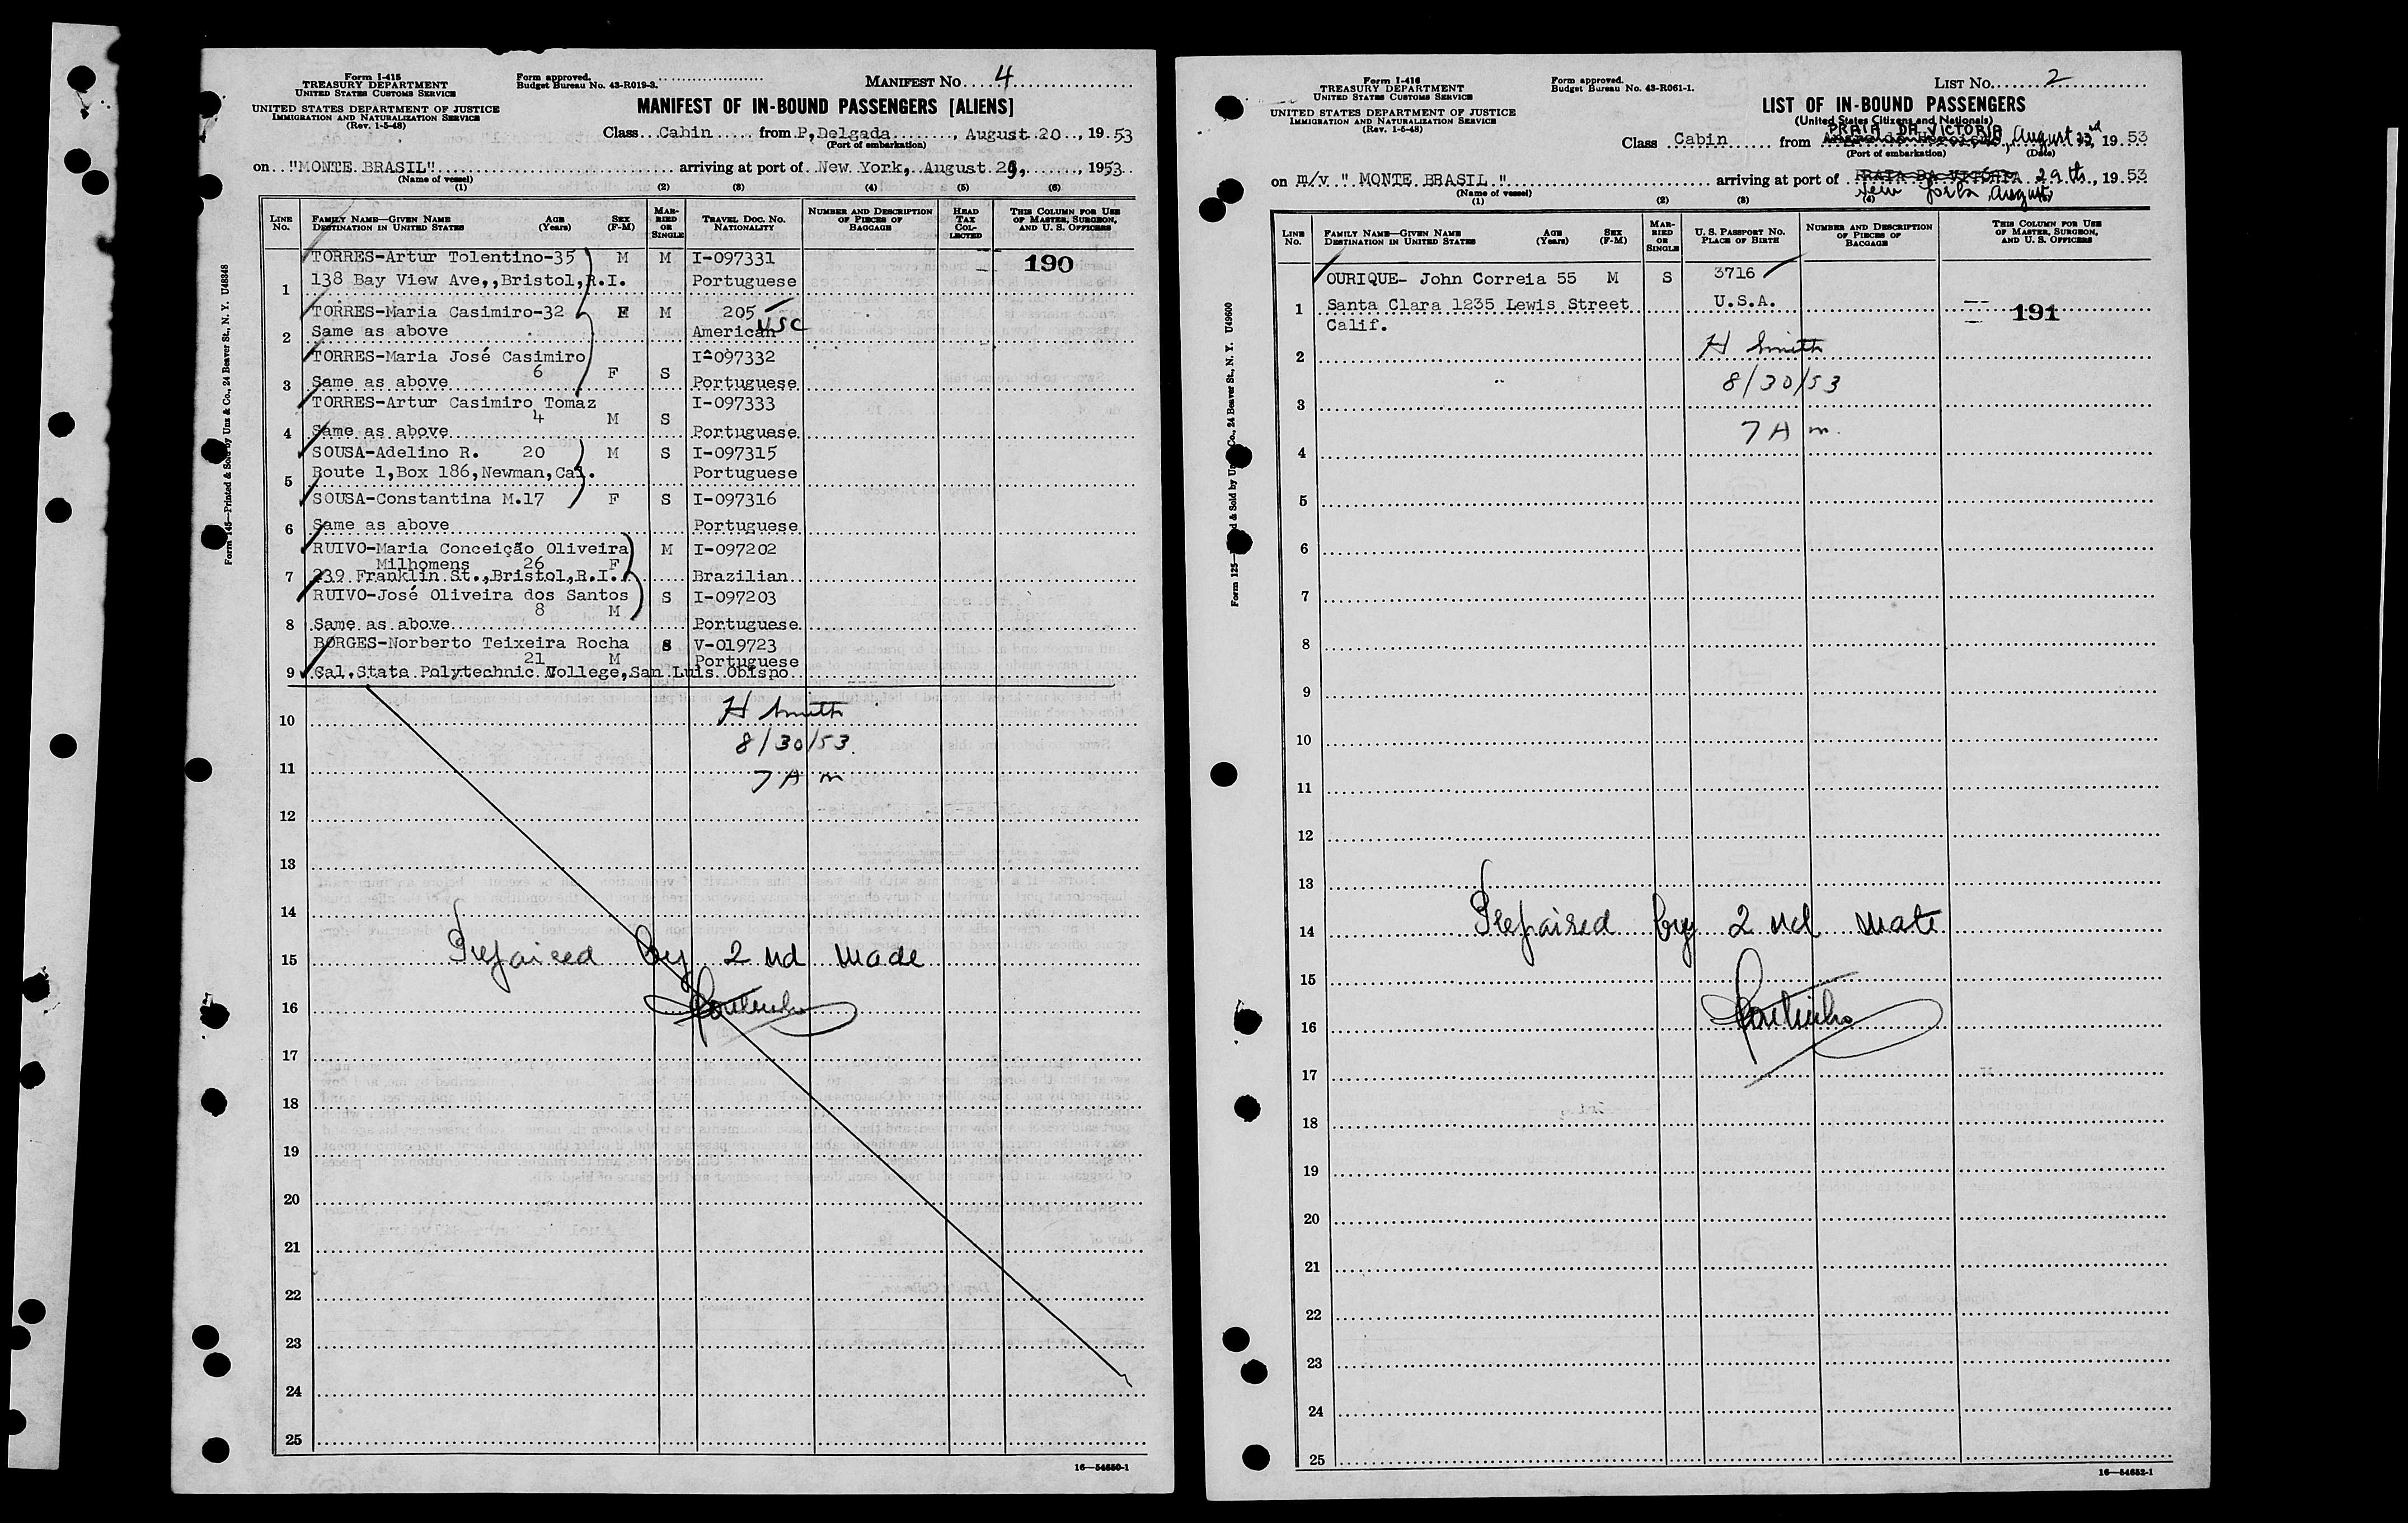 Form I-415
TREASURY DEPARTMENT
UNITED STATES CUSTOMS SERVICE
UNITED STATES DEPARTMENT OF JUSTICE
IMMIGRATION AND NATURALIZATION SERVICE
(Rev. 1-5-48)
Form approved.
Budget Bureau No. 43-R019-3.
MANIFEST NO. 4
MANIFEST OF IN-BOUND PASSENGERS [ALIENS]
Class Cabin from P, Delgada, August 20, 1953
(Port of embarkation)
on "MONTE BRASIL" arriving at port of New York, August 29, 1953
(Name of vessel)
(1) (2) (3) (4) (5) (6)
LINE No. FAMILY NAME—GIVEN NAME DESTINATION IN UNITED STATES AGE (Years) SEX (F-M) MARRIED OR SINGLE TRAVEL DOC. NO. NATIONALITY NUMBER AND DESCRIPTION OF PIECES OF BAGGAGE HEAD TAX COLLECTED THIS COLUMN FOR USE OF MASTER, SURGEON, AND U. S. OFFICERS
TORRES-Artur Tolentino-35 M M I-097331 190
1 138 Bay View Ave,,Bristol,R.I. Portuguese
TORRES-Maria Casimiro-32 F M 205
2 Same as above American USC
TORRES-Maria José Casimiro I-097332
6 F S
3 Same as above Portuguese
TORRES-Artur Casimiro Tomaz I-097333
4 M S
4 Same as above Portuguese
SOUSA-Adelino R. 20 M S I-097315
5 Route 1,Box 186,Newman,Cal. Portuguese
SOUSA-Constantina M.17 F S I-097316
6 Same as above Portuguese
RUIVO-Maria Conceição Oliveira M I-097202
Milhomens 26 F
7 239 Franklin St.,Bristol,R.I. Brazilian
RUIVO-José Oliveira dos Santos S I-097203
8 M
8 Same as above Portuguese
BORGES-Norberto Teixeira Rocha S V-019723
21 M Portuguese
9 Cal.State Polytechnic College,San Luis Obispo
H Smith
10
8/30/53
11
7 A m
12
13
14
15 Prepaired by 2 nd made
16 Coutinho
17
18
19
20
21
22
23
24
25
16—54650-1
Form 145—Printed & Sold by Unz & Co., 24 Beaver St., N. Y. U48848
Form I-416
TREASURY DEPARTMENT
UNITED STATES CUSTOMS SERVICE
UNITED STATES DEPARTMENT OF JUSTICE
IMMIGRATION AND NATURALIZATION SERVICE
(Rev. 1-5-48)
Form approved.
Budget Bureau No. 43-R061-1.
LIST NO. 2
LIST OF IN-BOUND PASSENGERS
(United States Citizens and Nationals)
PRAIA DA VICTORIA
Class Cabin from August 23rd, 1953
(Port of embarkation) (Date)
on m/v " MONTE BRASIL " arriving at port of PRAIA DA VICTORIA 29 th, 1953
New York August
(Name of vessel)
(1) (2) (3) (4) (5)
LINE No. FAMILY NAME—GIVEN NAME DESTINATION IN UNITED STATES AGE (Years) SEX (F-M) MARRIED OR SINGLE U. S. PASSPORT NO. PLACE OF BIRTH NUMBER AND DESCRIPTION OF PIECES OF BAGGAGE THIS COLUMN FOR USE OF MASTER, SURGEON, AND U. S. OFFICERS
OURIQUE- John Correia 55 M S 3716
1 Santa Clara 1235 Lewis Street U.S.A. 191
Calif.
2 H Smith
8/30/53
3
7 A m.
4
5
6
7
8
9
10
11
12
13
14 Prepaired by 2 nd mate
15
16 Coutinho
17
18
19
20
21
22
23
24
25
16—54652-1